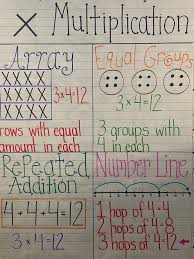 × Multiplication
Array
XXXX
XXXX
XXXX
3×4=12
rows with equal
amount in each
Equal Groups
3×4=12
3 groups with
4 in each
Repeated
Addition
4+4+4=12
3×4=12
Number Line
1 hop of 4-4
2 hops of 4-8
3 hops of 4-12